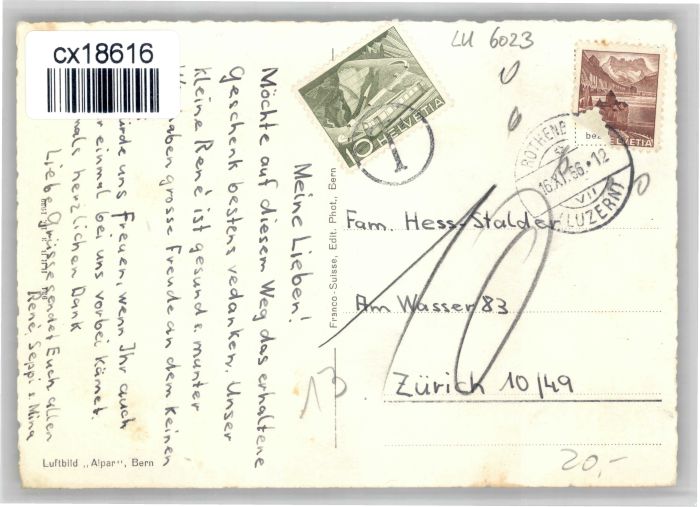 cx18616
LU 6023
10 HELVETIA
T
HELVETIA
ROTHENB
16.XI.56.-12
VII
(LUZERN)
Meine Lieben!
Möchte auf diesem Weg das erhaltene
Geschenk bestens verdanken. Unser
kleine René ist gesund u. munter
haben grosse Freude an dem kleinen
würde uns freuen, wenn Ihr auch
einmal bei uns vorbei kämet.
mals herzlichen Dank
Liebe Grüsse sendet Euch allen
René, Seppi u. Nina
Franco-Suisse, Edit. Phot., Bern
Fam. Hess-Stalder
Am Wasser 83
Zürich 10/49
10
13
20,-
Luftbild „Alpar", Bern